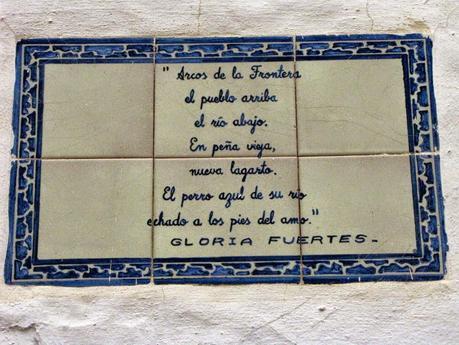 "Arcos de la Frontera
el pueblo arriba
el río abajo.
En peña vieja,
nueva lagarto.
El perro azul de su río
echado a los pies del amo."
GLORIA FUERTES-